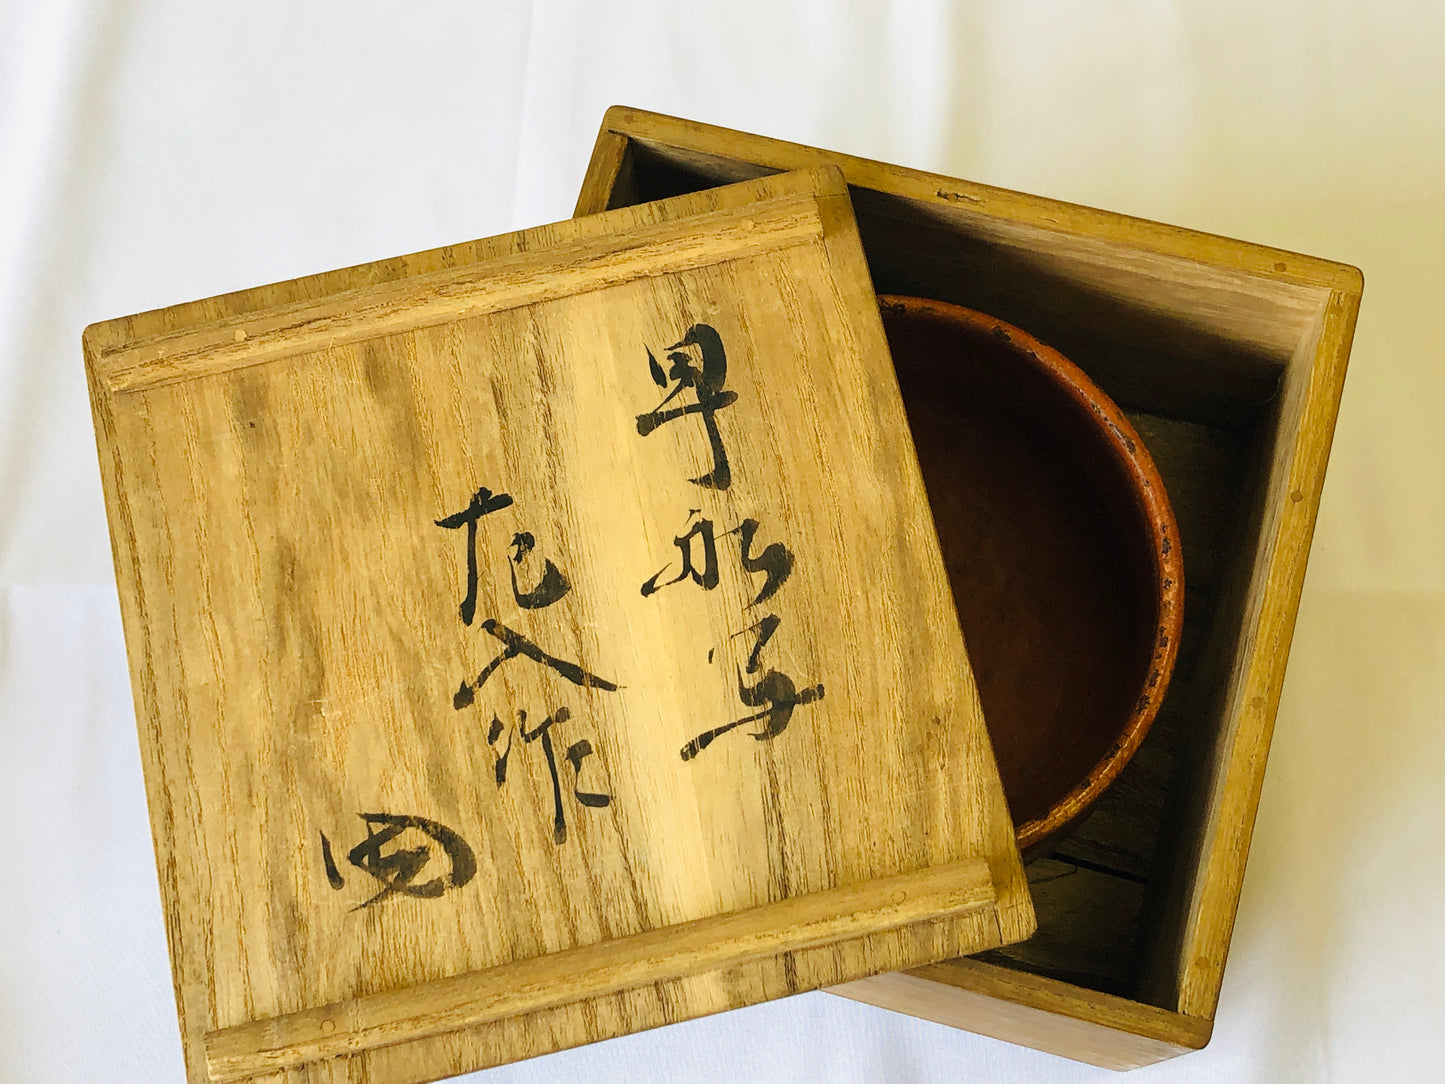 早船写
左入作